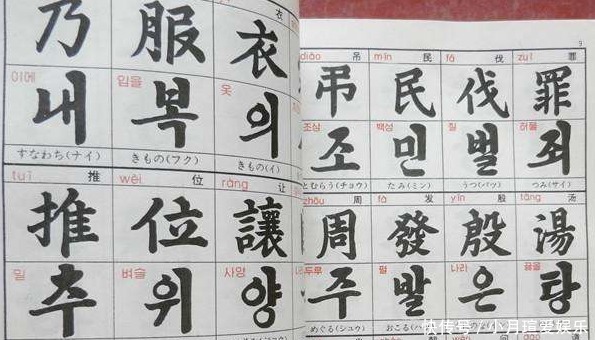 衣
乃 服 衣
이에 입을 옷
내 복 의
すなわち(ナイ) きもの(フク) きもの(イ)
tuī 推 wèi 位 ràng 让
推 位 讓
밀 벼슬 사양
추 위 양
9
diào 吊 mín 民 fá 伐 zuì 罪
弔 民 伐 罪
조상 백성 칠 허물
조 민 벌 죄
とむらう(チョウ) たみ(ミン) うつ(バツ) つみ(サイ)
zhōu 周 fā 发 yīn 殷 tāng 汤
周 發 殷 湯
두루 필 나라 끓을
주 발 은 탕
めぐる(シュウ) おこる(
快传号/小月瑄爱娱乐